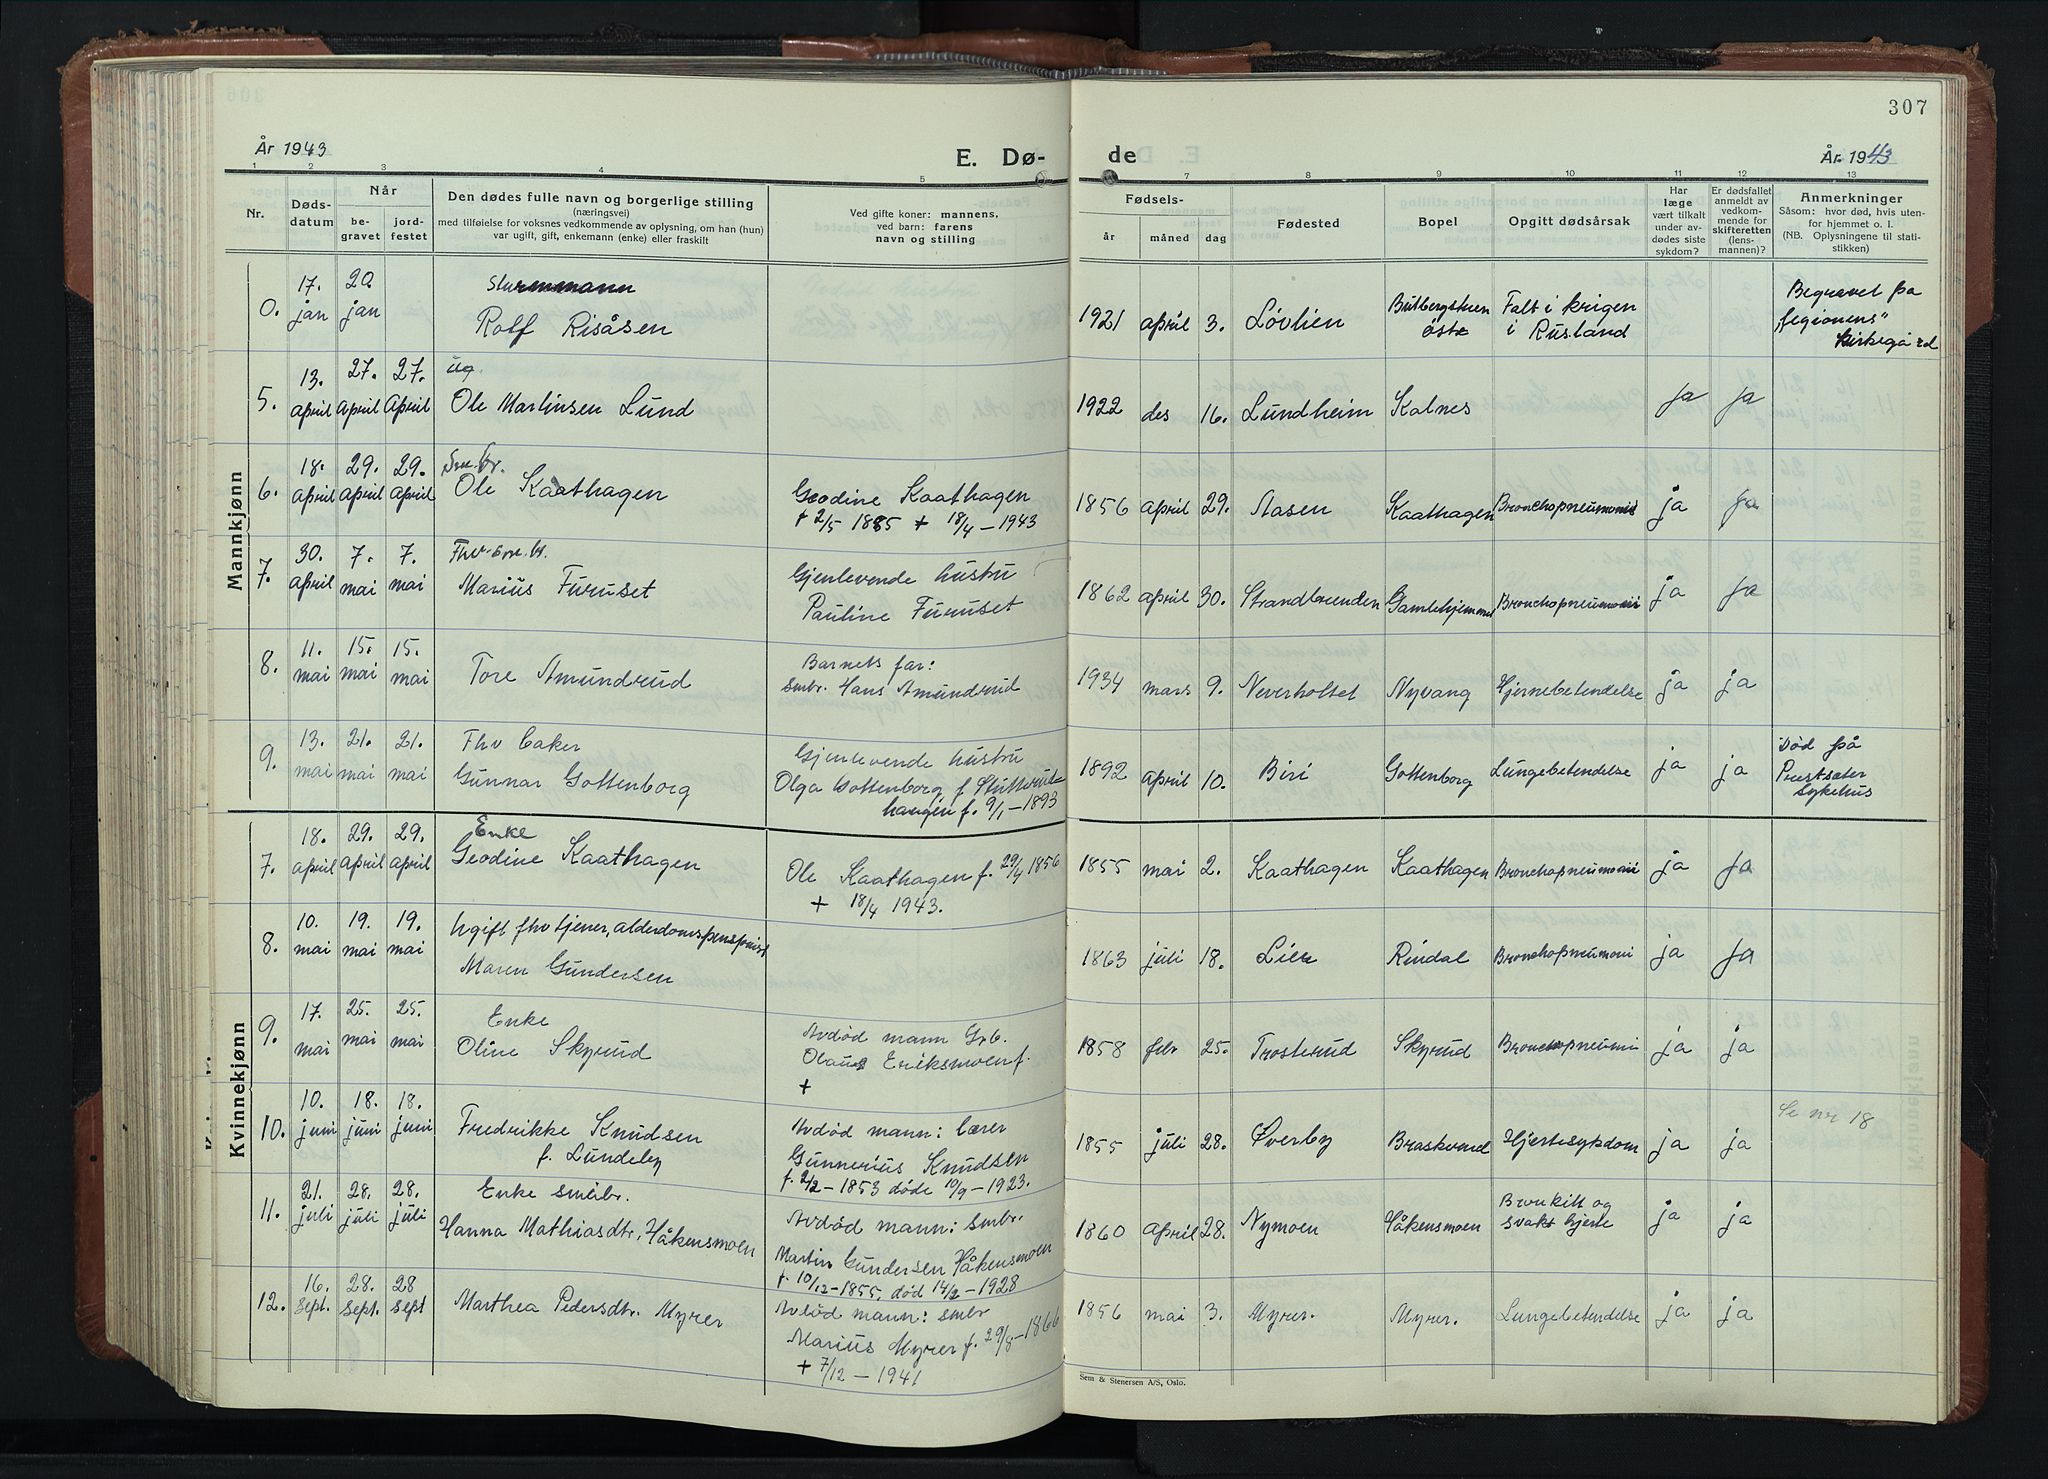 307
År 1943
E. Dø-
de
År 1943
1 2 3 4 5 7 8 9 10 11 12 13
Nr.
Døds-
datum
Når
be-
gravet
jord-
festet
Den dødes fulle navn og borgerlige stilling
(næringsvei)
med tilføielse for voksnes vedkommende av oplysning, om han (hun)
var ugift, gift, enkemann (enke) eller fraskilt
Ved gifte koner: mannens,
ved barn: farens
navn og stilling
Fødsels-
år måned dag
Fødested
Bopel
Opgitt dødsårsak
Har
læge
vært tilkalt
under av-
dødes siste
sykdom?
Er dødsfallet
anmeldt av
vedkom-
mende for
skifteretten
(lens-
mannen)?
Anmerkninger
Såsom: hvor død, hvis uten-
for hjemmet o. l.
(NB. Oplysningene til stati-
stikken)
Mannkjønn
0. 17. jan 20. jan
Sturmmann
Rolf Risåsen
1921 april 3. Løvlien
østre
Falt i krigen
i Rusland
Begravet på
"legionens"
kirkegård
5. 13. april 27. april 27. april
ug.
Ole Martinsen Lund
1922 des 16. Lundheim Kalnes
ja ja
6. 18. april 29. april 29. april
Sm.br.
Ole Kaathagen
Geodine Kaathagen
f 2/5 1855 + 18/4 - 1943
1856 april 29. Aasen Kaathagen Bronchopneumoni ja ja
7. 30. april 7. mai 7. mai
Fhv. sm.br.
Marius Furuset
Gjenlevende hustru
Pauline Furuset
1862 april 30. Strandbrenden Gamlehjemmet Bronchopneumoni ja ja
8. 11. mai 15. mai 15. mai
Tore Amundrud
Barnets far:
smbr. Hans Amundrud
1934 mars 9. Neverholtet Nyvang Hjernebetendelse ja ja
9. 13. mai 21. mai 21. mai
Fhv baker
Gunnar Gottenborg
Gjenlevende hustru
Olga Gottenborg f.
haugen f. 9/1 - 1893
1892 april 10. Biri Gottenborg Lungebetendelse ja ja
Død på
Prestsæter
sykehus
Kvinnekjønn
7. 18. april 29. april 29. april
Enke
Geodine Kaathagen
Ole Kaathagen f. 29/4 1856
+ 18/4 1943.
1855 mai 2. Kaathagen Kaathagen Bronchopneumoni ja ja
8. 10. mai 19. mai 19. mai
Ugift fhv tjener, alderdomspensjonist
Maren Gundersen
1863 juli 18. Lien Rindal Bronchopneumoni ja ja
9. 17. mai 25. mai 25. mai
Enke
Oline Skyrud
Avdød mann Grb.
Olaus Eriksmoen f.
+
1858 feb 25. Trosterud Skyrud Bronchopneumoni ja ja
10. 10. juni 18. juni 18. juni
Fredrikke Knudsen
f. Lundeby
Avdød mann: lærer
Gunnerius Knudsen
f. 2/2 - 1853 døde 10/9 - 1923.
1855 juli 28. Øverby Hjertesykdom ja ja
Se nr 18
11. 21. juli 28. juli 28. juli
Enke småbr.
Hanna Mathiasdtr. Håkensmoen
Avdød mann: smbr.
Martin Gundersen Håkensmoen
f. 10/12 - 1855, død 14/2 - 1928
1860 april 28. Nymoen Håkensmoen
Bronkitt og
svakt hjerte
ja ja
12. 16. sept. 28. sept. 28 sept
Marthea Pedersdtr. Myrer
Avdød mann: smbr
Marius Myrer f. 29/8 - 1866
+ 7/12 - 1941
1856 mai 3. Myrer. Myrer. Lungebetendelse ja ja
Sem & Stenersen A/S, Oslo.